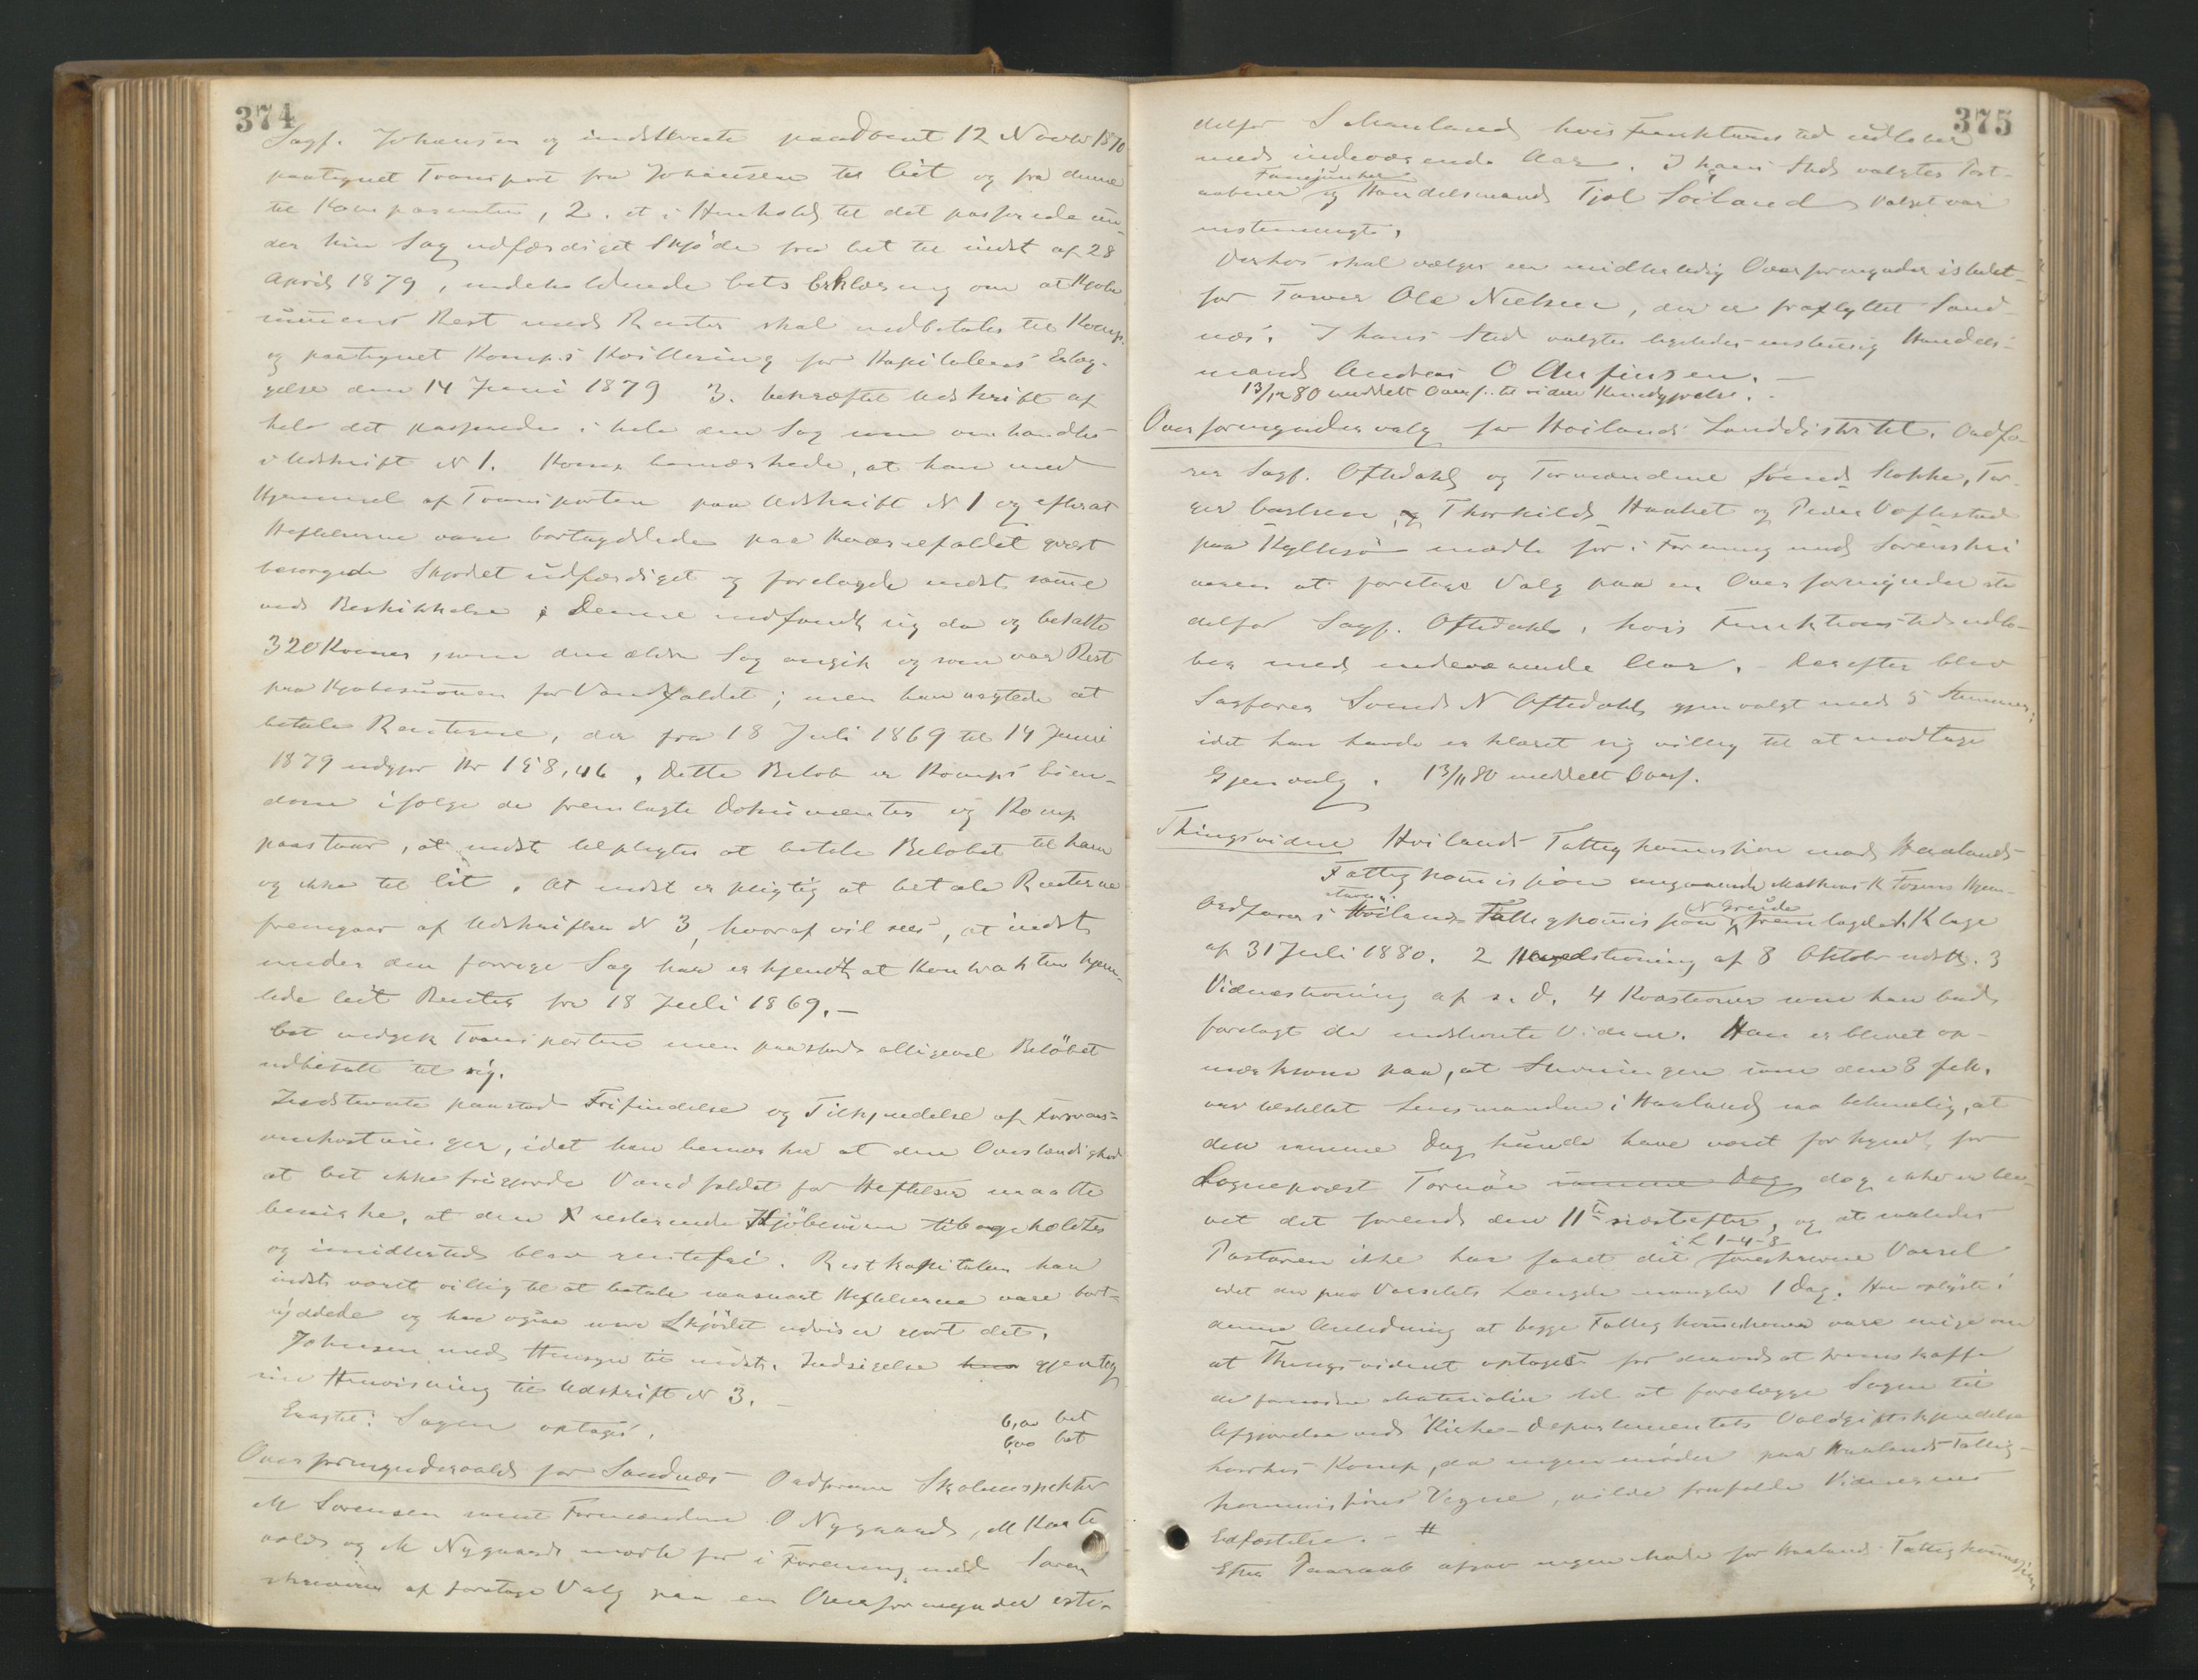 374
Sagf. Johansen og indstevnte paadømt 12 Novbr 1870
paategnet Transport fra Johansen til Cit og fra denne
til Komparenten, 2. et i Henhold til det passerede un-
der hin Sag udfærdiget Skjøde fra Cit til indst af 28
April 1879, indeholdende Cits Erklæring om at Kjøbe
summens Rest med Renter skal indbetales til Komp.
og paategnet Komp.s Kvittering for Kapitalens Erlæg-
gelse den 14 Juni 1879 3. bekræftet Udskrift af
hele det passerede i hele den Sag som omhandles
i Udskrift N 1. Komp bemærkede, at han med
Hjemmel af Transporten paa Udskrift N 1 og efterat
Heftelserne vare bortryddede paa Kværnefaldet
besørgede Skjødet udfærdiget og forelagde indst samme
ved Beskikkelse; Denne indfandt sig da og betalte
320 Kroner, som den ældre Sag angik og som var Rest
paa Kjøbesummen for Vandfaldet; men han nægtede at
betale Renterne, der fra 18 Juli 1869 til 14 Juni
1879 udgjør Kr 158,46, dette Beløb er Komps Eien-
dom ifølge de fremlagte Dokumenter og Komp
paastaar, at indst tilpligtes at betale Beløbet til ham
og ikke til Cit. At indst er pligtig at betale Renterne
fremgaar af Udskriften N 3, hvoraf vil sees, at indst
under den forrige Sag har erkjendt at Kontrakten hjem-
lede Cit Renter fra 18 Juli 1869. -
Cit vedgik Transporten men paastod alligevel Beløbet
udbetalt til sig.
Indstevnte paastod Frifindelse og Tilkjendelse af Forsvars-
omkostninger, idet han bemærker at den Omstændighed
at Cit ikke frigjorde Vandfaldet for Heftelser maatte
bevirke, at den resterende Kjøbesum tilbageholdtes
og imidlertid blev rentefri. Restkapitalen har
indst været villig til at betale saasnart Heftelserne vare bort-
ryddede og har ogsaa som Skjødet udviser gjort det.
Johnsen med Hensyn til indst. Indsigelse gjentog
sin Henvisning til Udskrift N 3. -
Eragtet: Sagen optages.
6,00 bet
6,00 bet
Overformyndervalg for Sandnæs Ordføreren Skoleinspektør
M Sørensen samt Formændene O Nygaard, M Kaate
vold og M Nygaard mødte for i Forening med Soren
skriveren at foretage Valg paa en Overformynder iste-
375
delfor Schanland hvis Funktionstid udløber
med indeværende Aar. I hans Sted valgtes Post-
Fanejunker
aabner og Handelsmand Tjøl Soiland Valget var
enstemmigt.
Derhos skal vælges en midlertidig Overformynder istedet-
for Farver Ole Nielsen, der er fraflyttet Sand-
næs. I hans Sted valgtes ligeledes enstemmig Handels-
mand Andreas O Anfinsen. -
13/12 80 meddelt Overf. til videre Kundgjørelse.
Overformyndervalg for Høilands Landdistrikt. Ordfø-
rer Sagf. Oftedahl og Formændene Svend Skokke, Tor-
ger Carlsen og Thorkild Hauket og Peder Vaslestad
paa Kyllesø mødte for i Forening med Sorenskri
veren at foretage Valg paa en Overformynder iste
delfor Sagf. Oftedahl, hvis Funktionstid udlø-
ber med indeværende Aar. - Derefter blev
Sagfører Svend N Oftedahl gjenvalgt med 5 Stemmer,
idet han havde erklæret sig villig til at modtage
Gjenvalg. 13/11 80 meddelt Overf.
Thingsvidne Høilands Fattigkommission mod Haalands
Fattigkommission angaaende Mathias K Fosens Hjem-
stavn.
N Grude
Ordfører i Høilands Fattigkommission fremlagde 1. Klage
af 31 Juli 1880. 2 stevning af 8 Oktober udst. 3
Vidnestevning af s. D. 4 Kvæstioner som han bad
forelagt de indstevnte Vidner. Han er blevet op-
mærksom paa, at Stevningen som den 8 fdl.
var tilstillet Lensmanden i Haaland saa betimelig, at
den samme Dag kunde have været forkyndt for
Sogneprest Tornøe samme Dag dog ikke er ble-
vet det førend den 11te næstefter, og at saaledes
i L 1-4-3
Pastoren ikke har faaet det foreskrevne Varsel
idet der paa Varselets Længde mangler 1 Dag. Han oplyste i
denne Anledning at begge Fattigkommissioner vare enige om
at Thingsvidnet optages for derved at fremskaffe
de fornødne Materialier til at forelægge Sagen til
Afgjørelse ved Kirke-Departementets Voldgiftskjendelse
hvorhos Komp, da ingen møder paa Haalands Fattig-
kommissions Vegne, vilde frafalde Vidnernes
Edfæstelse. - #
Efter Paaraab afgav ingen Møde for Haalands Fattigkommission